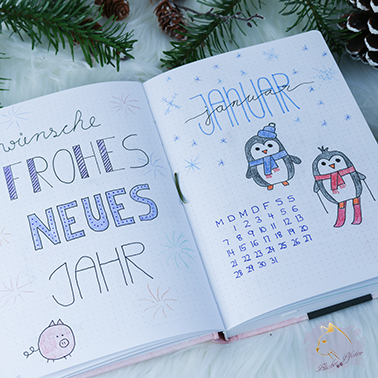 wünsche
FROHES
NEUES
JAHR
JANUAR
januar
M D M D F S S
1 2 3 4 5 6
7 8 9 10 11 12 13
14 15 16 17 18 19 20
21 22 23 24 25 26 27
28 29 30 31